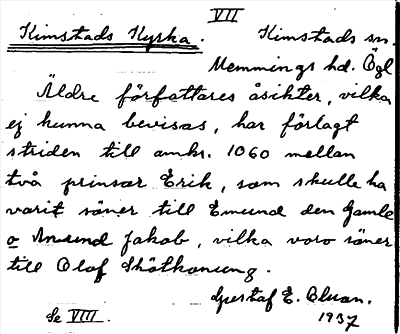 VII
Kimstads Kyrka. Kimstads sn.
Memmings hd. Ögl
Äldre författares åsikter, vilka
ej kunna bevisas, har förlagt
striden till omkr. 1060 mellan
två prinsar Erik, som skulle ha
varit söner till Emund den Gamle
o Anund Jakob, vilka voro söner
till Olof Skötkonung.
Gustaf E. Olsson.
Se VIII. 1937